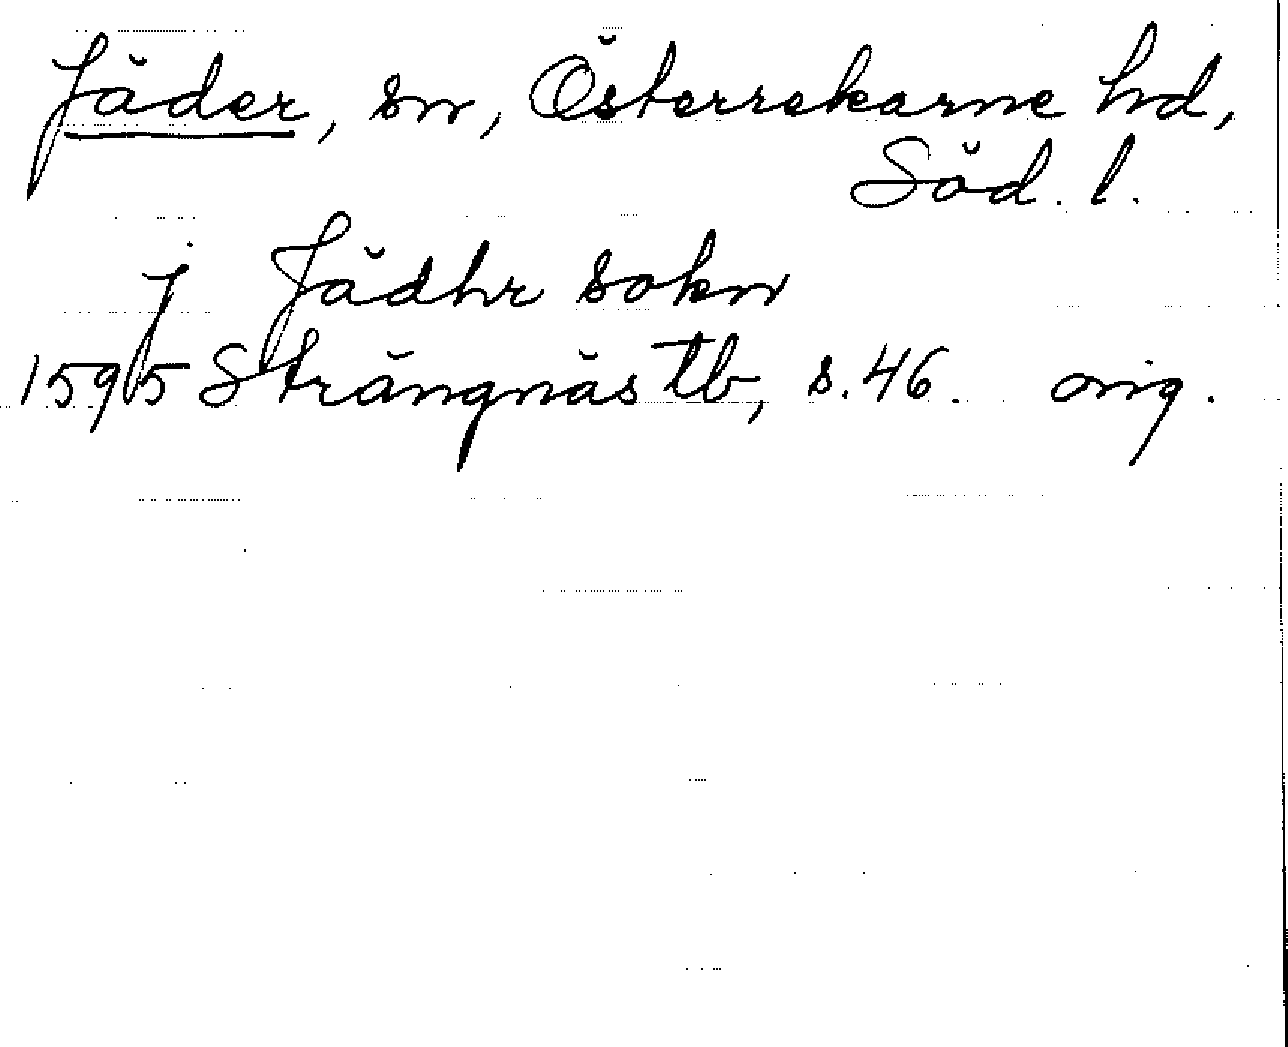 Jäder, sn, Österrekarne hd,
Söd. l.
j Jädhr sokn
1595 Strängnäs tb, s. 46. orig.